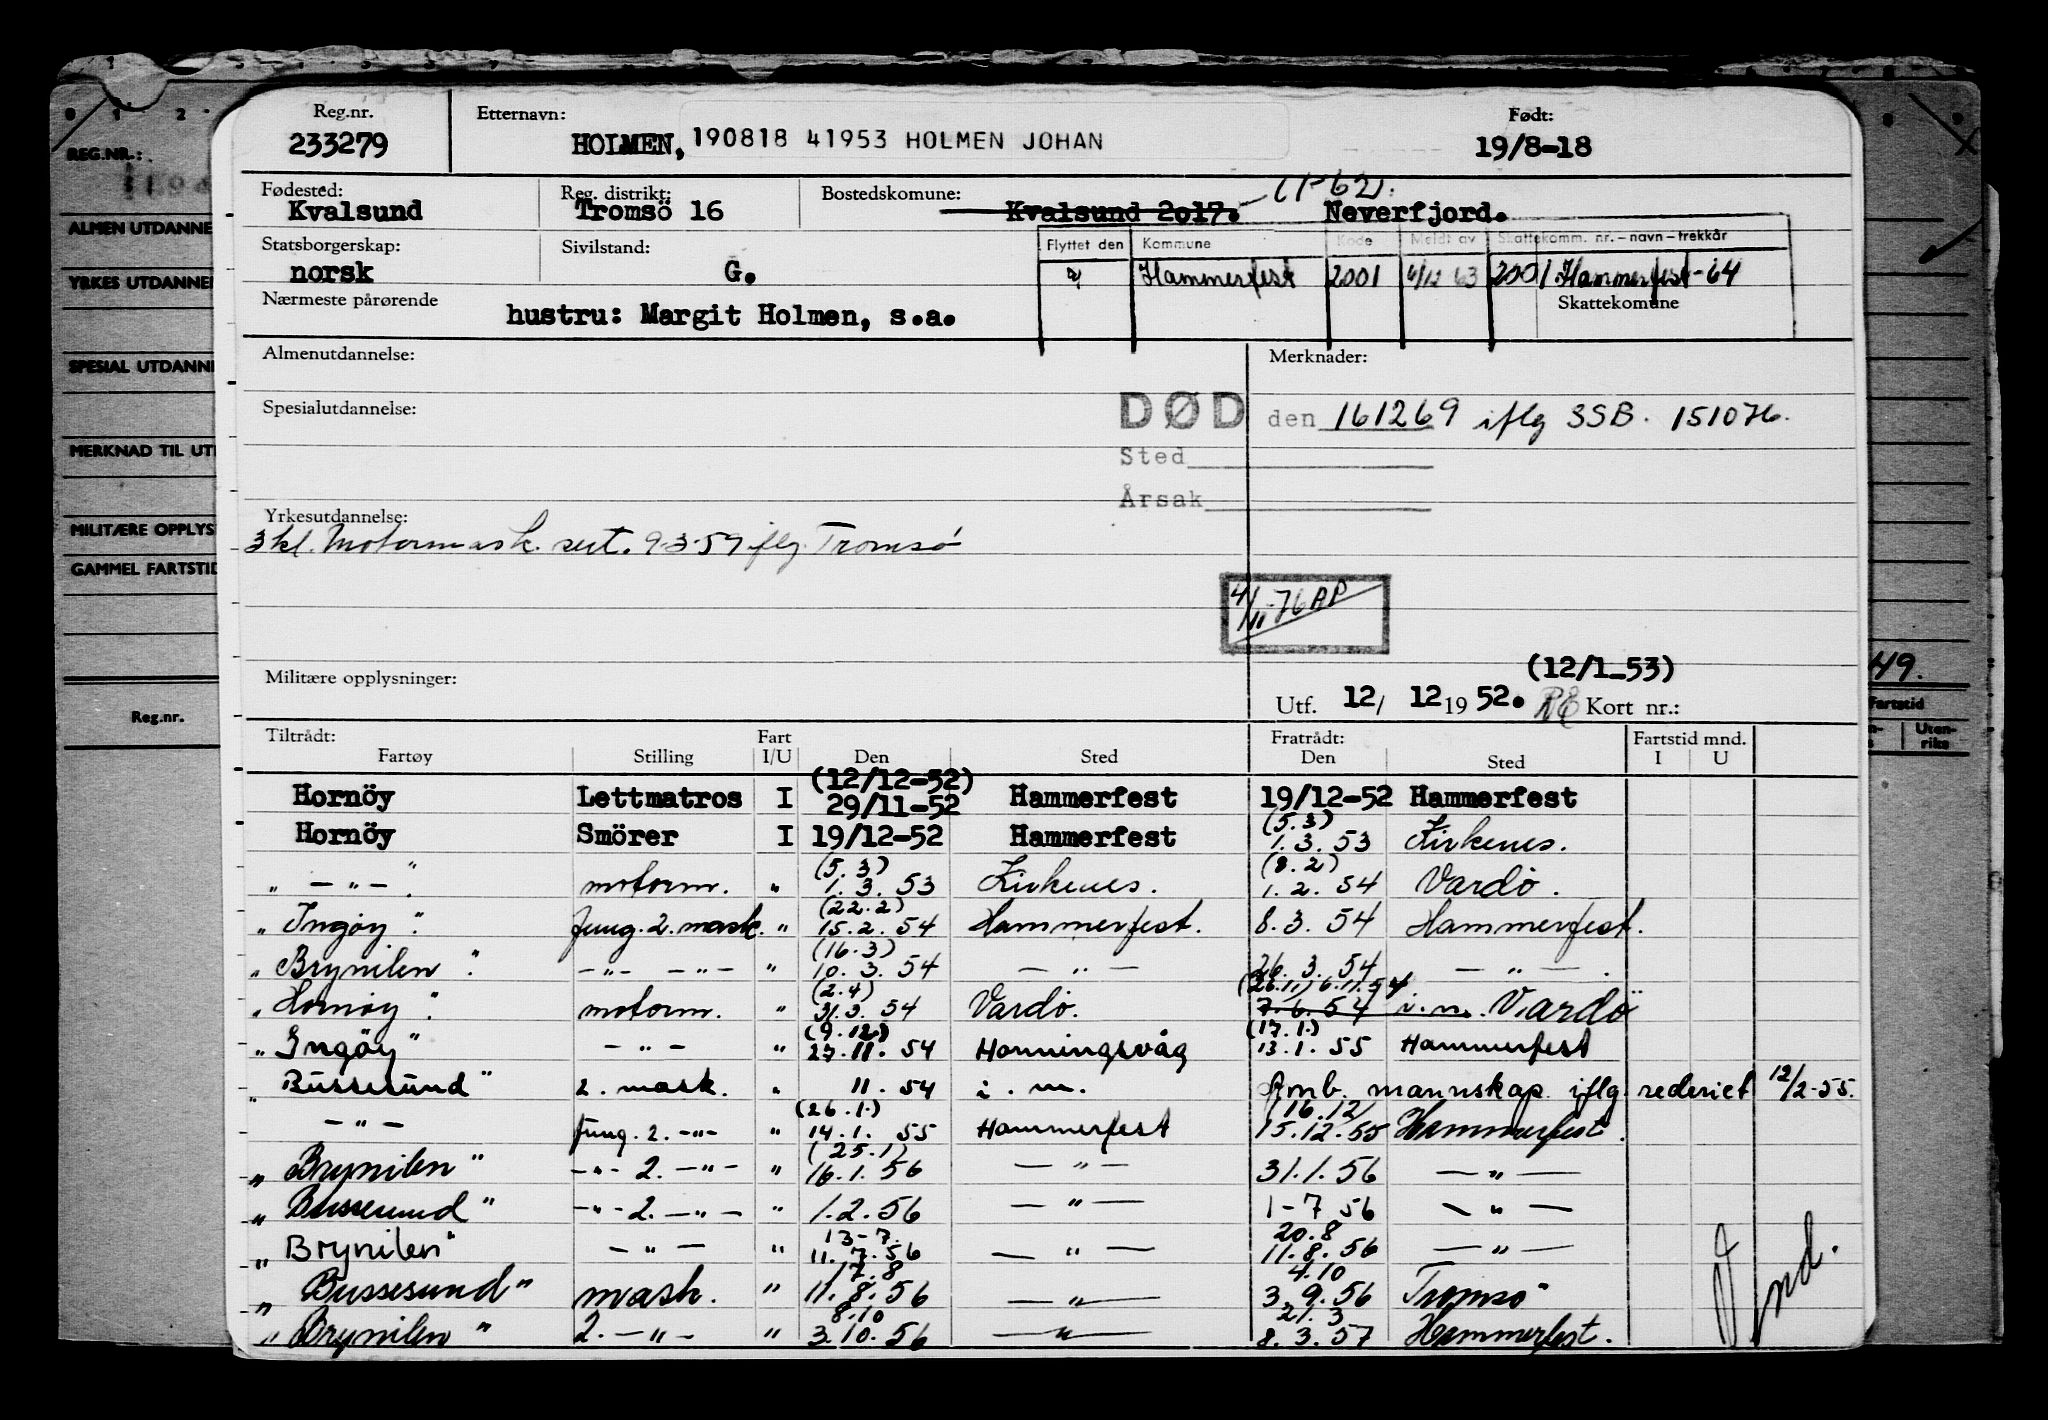 Reg.nr. Etternavn: Født:
233279 HOLMEN, 190818 41953 HOLMEN JOHAN 19/8-18
REG.NR.:
Fødested: Reg. distrikt: Bostedskomune: (1-62).
Kvalsund Tromsö 16 Kvalsund 2017. Neverfjord.
ALMEN UTDANNE
Statsborgerskap: Sivilstand: Flyttet den Kommune Kode Meldt av Skattekomm. nr. – navn – trekkår
norsk G. Hammerfest 2001 6/12 63 2001 Hammerfest -64
YRKES UTDANNE
Nærmeste pårørende Skattekomune
hustru: Margit Holmen, s.a.
Almenutdannelse: Merknader:
SPESIAL UTDANNE
Spesialutdannelse: DØD den 161269 iflg SSB. 151076.
MERKNAD TIL UTD
Sted
Årsak
Yrkesutdannelse:
MILITÆRE OPPLYS
3 kl. Motormask. sert. 9-3-57 iflg. Tromsø
GAMMEL FARTSTID
4/11-76 AP
Militære opplysninger: (12/1_53)
49.
Utf. 12/ 12 19 52. RE Kort nr.:
Reg.nr. Fartstid
Tiltrådt: Fart Fratrådt: Fartstid mnd.
Fartøy Stilling I/U Den Sted Den Sted I U
Uten-
riks
(12/12-52)
Hornöy Lettmatros I 29/11-52 Hammerfest 19/12-52 Hammerfest
Hornöy Smörer I 19/12-52 Hammerfest (5.3) 1.3.53 Kirkenes.
" — " — " motorm. " (5.3) 1.3.53 Kirkenes. (8.2) 1.2.54 Vardø.
" Ingöy " Fung. 2. mask. " (22.2) 15.2.54 Hammerfest. 8.3.54 Hammerfest.
" Brynilen " — " — — " — " (16.3) 10.3.54 — " — 26.3.54 — " — .
" Hornöy " motorm. " (2.4) 31.3.54 Vardö. (26.11) 6.11.54 7.6.54 i.m. Vardö
" Ingöy " — " — " (9.12) 27.11.54 Honningsvåg (17.1.) 13.1.55 Hammerfest
" Bussesund " 2. mask. " 11.54 i.m. Omb. mannskap iflg rederiet 12/2-55.
— " — Fung. 2. — " — " (26.1.) 14.1.55 Hammerfest (16.12) 15.12.55 Hammerfest.
" Brynilen " — " — 2. — " — " (25.1) 16.1.56 — " — 31.1.56 — " —
" Bussesund " — " — 2. — " — " 1.2.56 — " — 1-7 56 — " —
" Brynilen " — " — " 13-7. 11.7.56 — " — 20.8 11.8.56 — " —
" Bussesund " mask. " 17.8 11.8.56 — " — 4.10 3.9.56 Tromsö
" Brynilen " 2. — " — " 8.10 3.10.56 — " — 21.3 8.3.57 Hammerfest.